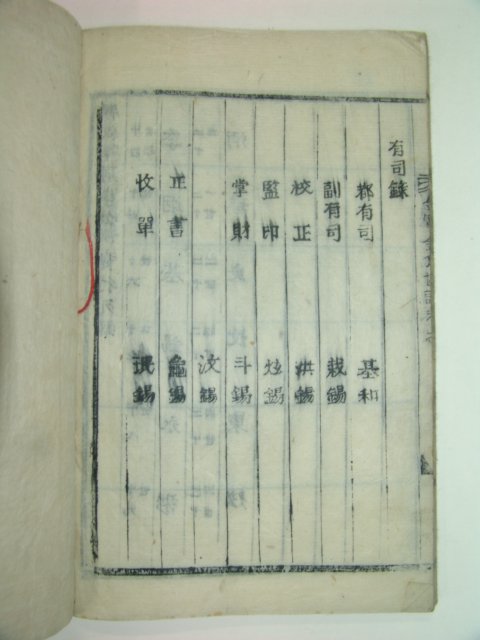 有司錄
都有司 基和
副有司 栽錫
校正 洪錫
監印 炫錫
掌財 斗錫
汶錫
正書 龜錫
收單 珉錫